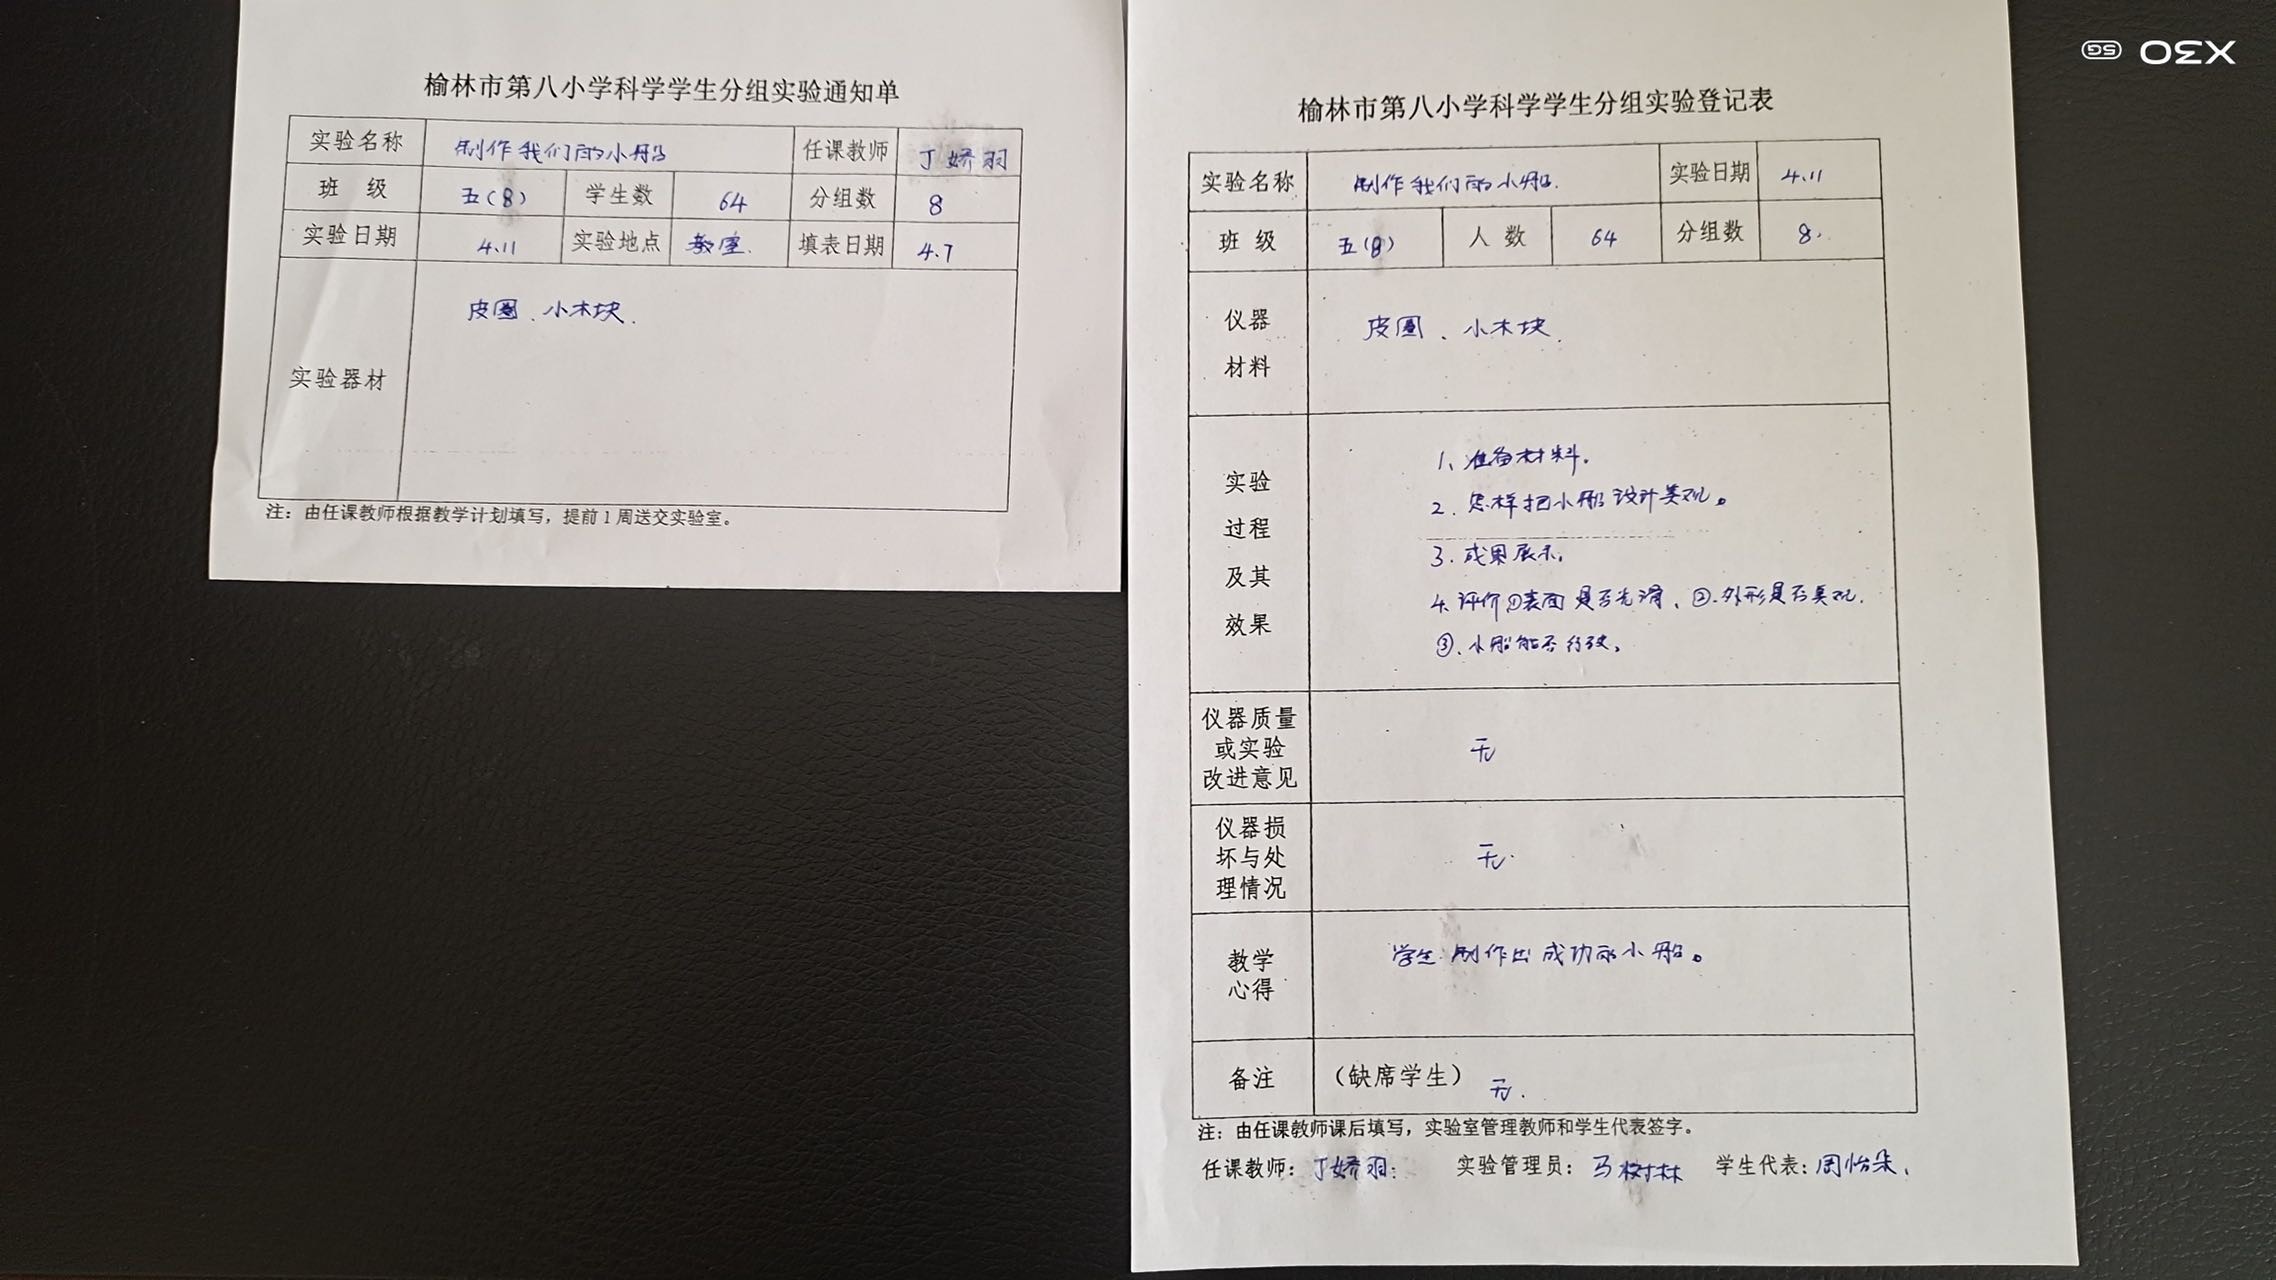 榆林市第八小学科学学生分组实验通知单
实验名称 制作我们的小船 任课教师 丁娇羽
班 级 五(8) 学生数 64 分组数 8
实验日期 4.11 实验地点 教室. 填表日期 4.7
实验器材 皮圈、小木块.
注：由任课教师根据教学计划填写，提前1周送交实验室。
榆林市第八小学科学学生分组实验登记表
实验名称 制作我们的小船. 实验日期 4.11
班 级 五(8) 人 数 64 分组数 8.
仪器
材料
皮圈、小木块.
实验
过程
及其
效果
1、准备材料。
2. 怎样把小船设计美观。
3. 成果展示。
4. 评价①表面是否光滑、②.外形是否美观.
③. 小船能否行驶。
仪器质量
或实验
改进意见
无
仪器损
坏与处
理情况
无.
教学
心得
学生制作出成功的小船。
备注 （缺席学生） 无.
注：由任课教师课后填写，实验室管理教师和学生代表签字。
任课教师：丁娇羽. 实验管理员：马树林 学生代表：周怡朵.
X30 5G